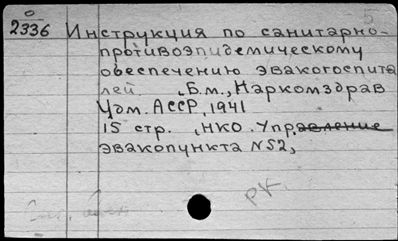 2336 Инструкция по санитарно-
противоэпидемическому
обеспечению эвакогоспита
лей. Б.м., Наркомздрав
Удм. АССР, 1941
15 стр. , НКО. Управление
эвакопункта N52,
РК